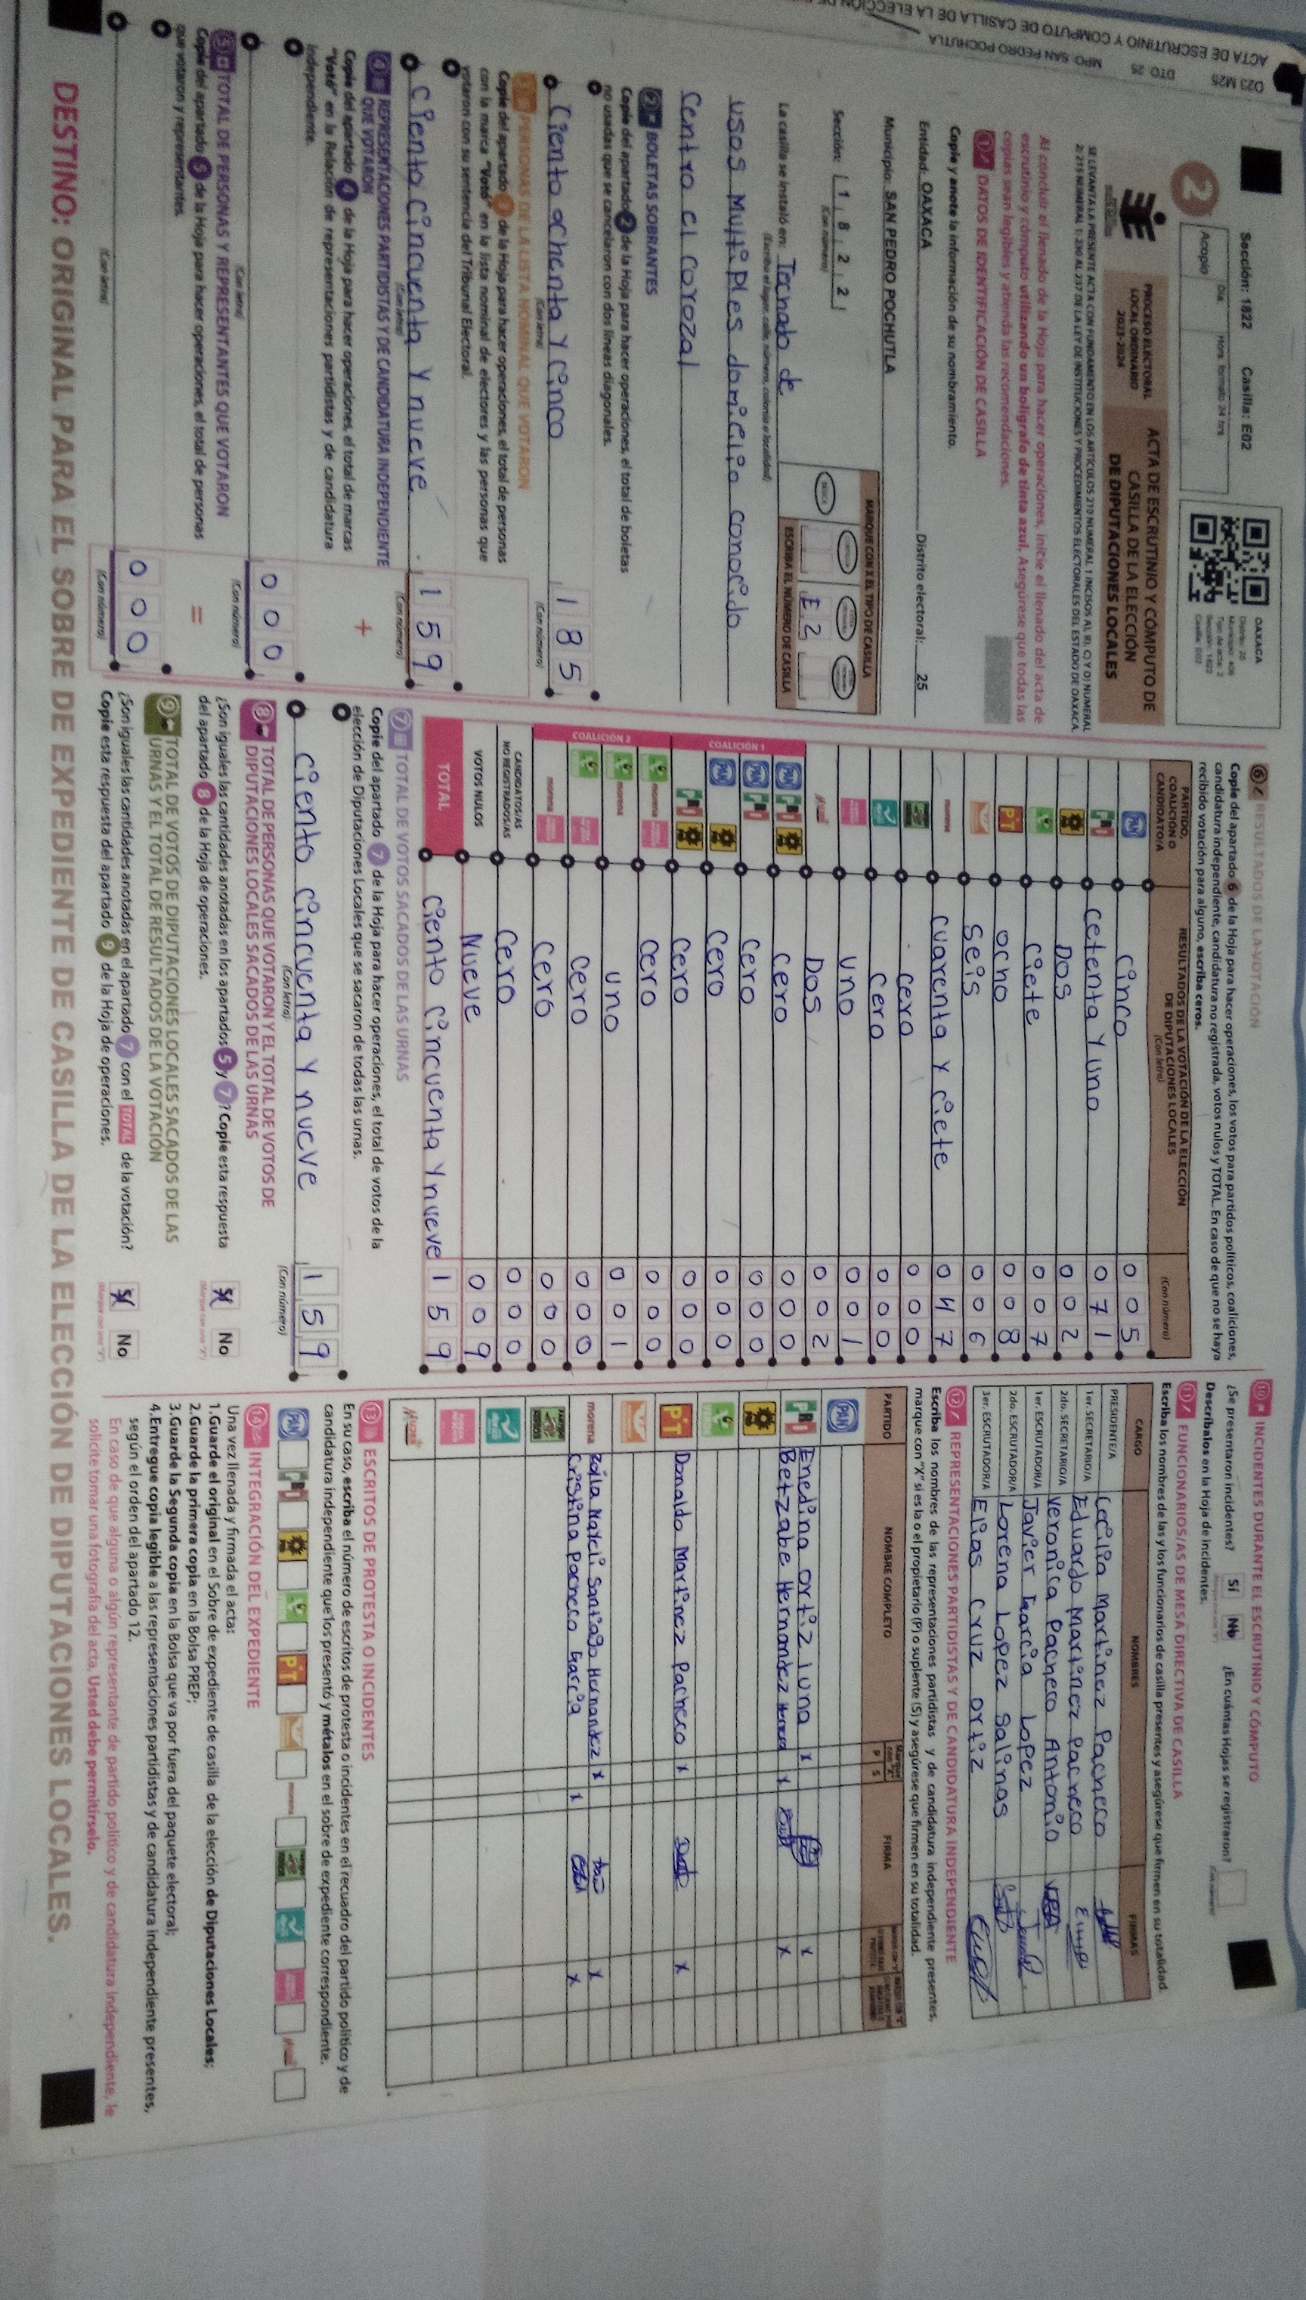 D23 M25 DTO 25 MPO SAN PEDRO POCHUTLA
ACTA DE ESCRUTINIO Y CÓMPUTO DE CASILLA DE LA ELECCIÓN
Sección: 1822 Casilla: E02
2
Acopio
Día Hora, formato 24 hrs
OAXACA
Distrito: 25
Tipo de acta: 2
Sección: 1822
Casilla: E02
PROCESO ELECTORAL
LOCAL ORDINARIO
2023-2024
ACTA DE ESCRUTINIO Y CÓMPUTO DE
CASILLA DE LA ELECCIÓN
DE DIPUTACIONES LOCALES
Al concluir el llenado de la Hoja para hacer operaciones, inicie el llenado del acta de
escrutinio y cómputo utilizando un bolígrafo de tinta azul. Asegúrese que todas las
copias sean legibles y atienda las recomendaciones.
1 DATOS DE IDENTIFICACIÓN DE CASILLA
Copie y anote la información de su nombramiento.
Entidad: OAXACA Distrito electoral: 25
Municipio: SAN PEDRO POCHUTLA
Sección: 1 8 2 2
(Con número)
MARQUE CON X EL TIPO DE CASILLA
E 2
ESCRIBA EL NÚMERO DE CASILLA
La casilla se instaló en: Tornado de
(Escriba el lugar, calle, número, colonia o localidad)
usos Multiples domicilio conocido
Centro el corozal
2 BOLETAS SOBRANTES
Copie del apartado 2 de la Hoja para hacer operaciones, el total de boletas
no usadas que se cancelaron con dos líneas diagonales.
Ciento ochenta y cinco 1 8 5
(Con letra) (Con número)
3 PERSONAS DE LA LISTA NOMINAL QUE VOTARON
Copie del apartado 3 de la Hoja para hacer operaciones, el total de personas
con la marca "Votó" en la lista nominal de electores y las personas que
votaron con su sentencia del Tribunal Electoral.
Ciento cincuenta y nueve 1 5 9
(Con letra) (Con número)
4 REPRESENTACIONES PARTIDISTAS Y DE CANDIDATURA INDEPENDIENTE
QUE VOTARON
+
Copie del apartado 4 de la Hoja para hacer operaciones, el total de marcas
"Votó" en la Relación de representaciones partidistas y de candidatura
independiente.
0 0 0
(Con letra) (Con número)
5 TOTAL DE PERSONAS Y REPRESENTANTES QUE VOTARON
Copie del apartado 5 de la Hoja para hacer operaciones, el total de personas
que votaron y representantes.
=
0 0 0
(Con letra) (Con número)
6 RESULTADOS DE LA VOTACIÓN
Copie del apartado 6 de la Hoja para hacer operaciones, los votos para partidos políticos, coaliciones,
candidatura independiente, candidatura no registrada, votos nulos y TOTAL. En caso de que no se haya
recibido votación para alguno, escriba ceros.
PARTIDO,
COALICIÓN O
CANDIDATO/A
RESULTADOS DE LA VOTACIÓN DE LA ELECCIÓN
DE DIPUTACIONES LOCALES
(Con letra)
(Con número)
PAN Cinco 0 0 5
PRI Cetenta y uno 0 7 1
PRD Dos 0 0 2
Ciete 0 0 7
PT ocho 0 0 8
Seis 0 0 6
morena cuarenta y ciete 0 4 7
cero 0 0 0
cero 0 0 0
uno 0 0 1
Dos 0 0 2
COALICIÓN 1
PAN PRI PRD cero 0 0 0
PAN PRI cero 0 0 0
PAN PRD cero 0 0 0
PRI PRD cero 0 0 0
COALICIÓN 2
morena cero 0 0 0
morena uno 0 0 1
cero 0 0 0
morena cero 0 0 0
CANDIDATOS/AS
NO REGISTRADOS/AS cero 0 0 0
VOTOS NULOS Nueve 0 0 9
TOTAL Ciento cincuenta y nueve 1 5 9
7 TOTAL DE VOTOS SACADOS DE LAS URNAS
Copie del apartado 7 de la Hoja para hacer operaciones, el total de votos de la
elección de Diputaciones Locales que se sacaron de todas las urnas.
Ciento cincuenta y nueve 1 5 9
(Con letra) (Con número)
8 TOTAL DE PERSONAS QUE VOTARON Y EL TOTAL DE VOTOS DE
DIPUTACIONES LOCALES SACADOS DE LAS URNAS
¿Son iguales las cantidades anotadas en los apartados 5 y 7? Copie esta respuesta
del apartado 8 de la Hoja de operaciones.
Sí No
9 TOTAL DE VOTOS DE DIPUTACIONES LOCALES SACADOS DE LAS
URNAS Y EL TOTAL DE RESULTADOS DE LA VOTACIÓN
¿Son iguales las cantidades anotadas en el apartado 7 con el TOTAL de la votación?
Copie esta respuesta del apartado 9 de la Hoja de operaciones.
Sí No
10 INCIDENTES DURANTE EL ESCRUTINIO Y CÓMPUTO
¿Se presentaron incidentes? Sí No ¿En cuántas Hojas se registraron?
Descríbalos en la Hoja de incidentes.
11 FUNCIONARIOS/AS DE MESA DIRECTIVA DE CASILLA
Escriba los nombres de las y los funcionarios de casilla presentes y asegúrese que firmen en su totalidad.
CARGO NOMBRES FIRMAS
PRESIDENTE/A Cecilia Martinez Pacheco
1er. SECRETARIO/A Eduardo Martinez Pacheco
2do. SECRETARIO/A Veronica Pacheco Antonio
1er. ESCRUTADOR/A Javier Garcia Lopez
2do. ESCRUTADOR/A Lorena Lopez Salinas
3er. ESCRUTADOR/A Elias Cruz Ortiz
12 REPRESENTACIONES PARTIDISTAS Y DE CANDIDATURA INDEPENDIENTE
Escriba los nombres de las representaciones partidistas y de candidatura independiente presentes,
marque con "X" si es la o el propietario (P) o suplente (S) y asegúrese que firmen en su totalidad.
PARTIDO NOMBRE COMPLETO P S FIRMA
PAN
PRI Enedina ortiz luna x x
Betzabe Hernandez Herrera x x
PRD
PT Donaldo Martinez Pacheco x x
morena Nateli Santiago Hernandez x x
Cristina Pacheco Garcia x x
13 ESCRITOS DE PROTESTA O INCIDENTES
En su caso, escriba el número de escritos de protesta o incidentes en el recuadro del partido político y de
candidatura independiente que los presentó y métalos en el sobre de expediente correspondiente.
PAN PRI PRD PT morena
14 INTEGRACIÓN DEL EXPEDIENTE
Una vez llenada y firmada el acta:
1.Guarde el original en el Sobre de expediente de casilla de la elección de Diputaciones Locales;
2.Guarde la primera copia en la Bolsa PREP;
3.Guarde la Segunda copia en la Bolsa que va por fuera del paquete electoral;
4.Entregue copia legible a las representaciones partidistas y de candidatura independiente presentes,
según el orden del apartado 12.
En caso de que alguna o algún representante de partido político y de candidatura independiente, le
solicite tomar una fotografía del acta, Usted debe permitírselo.
DESTINO: ORIGINAL PARA EL SOBRE DE EXPEDIENTE DE CASILLA DE LA ELECCIÓN DE DIPUTACIONES LOCALES.